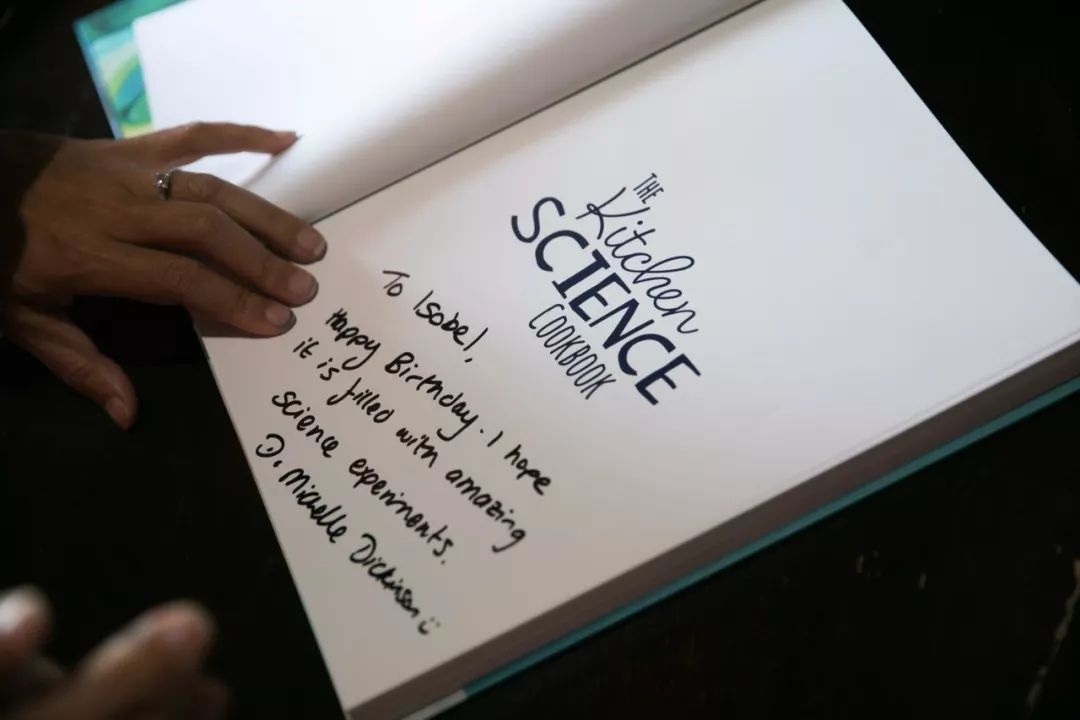 THE
Kitchen
SCIENCE
COOKBOOK
To Isobel,
Happy Birthday. I hope
it is filled with amazing
science experiments.
D. Michelle Dickinson :)